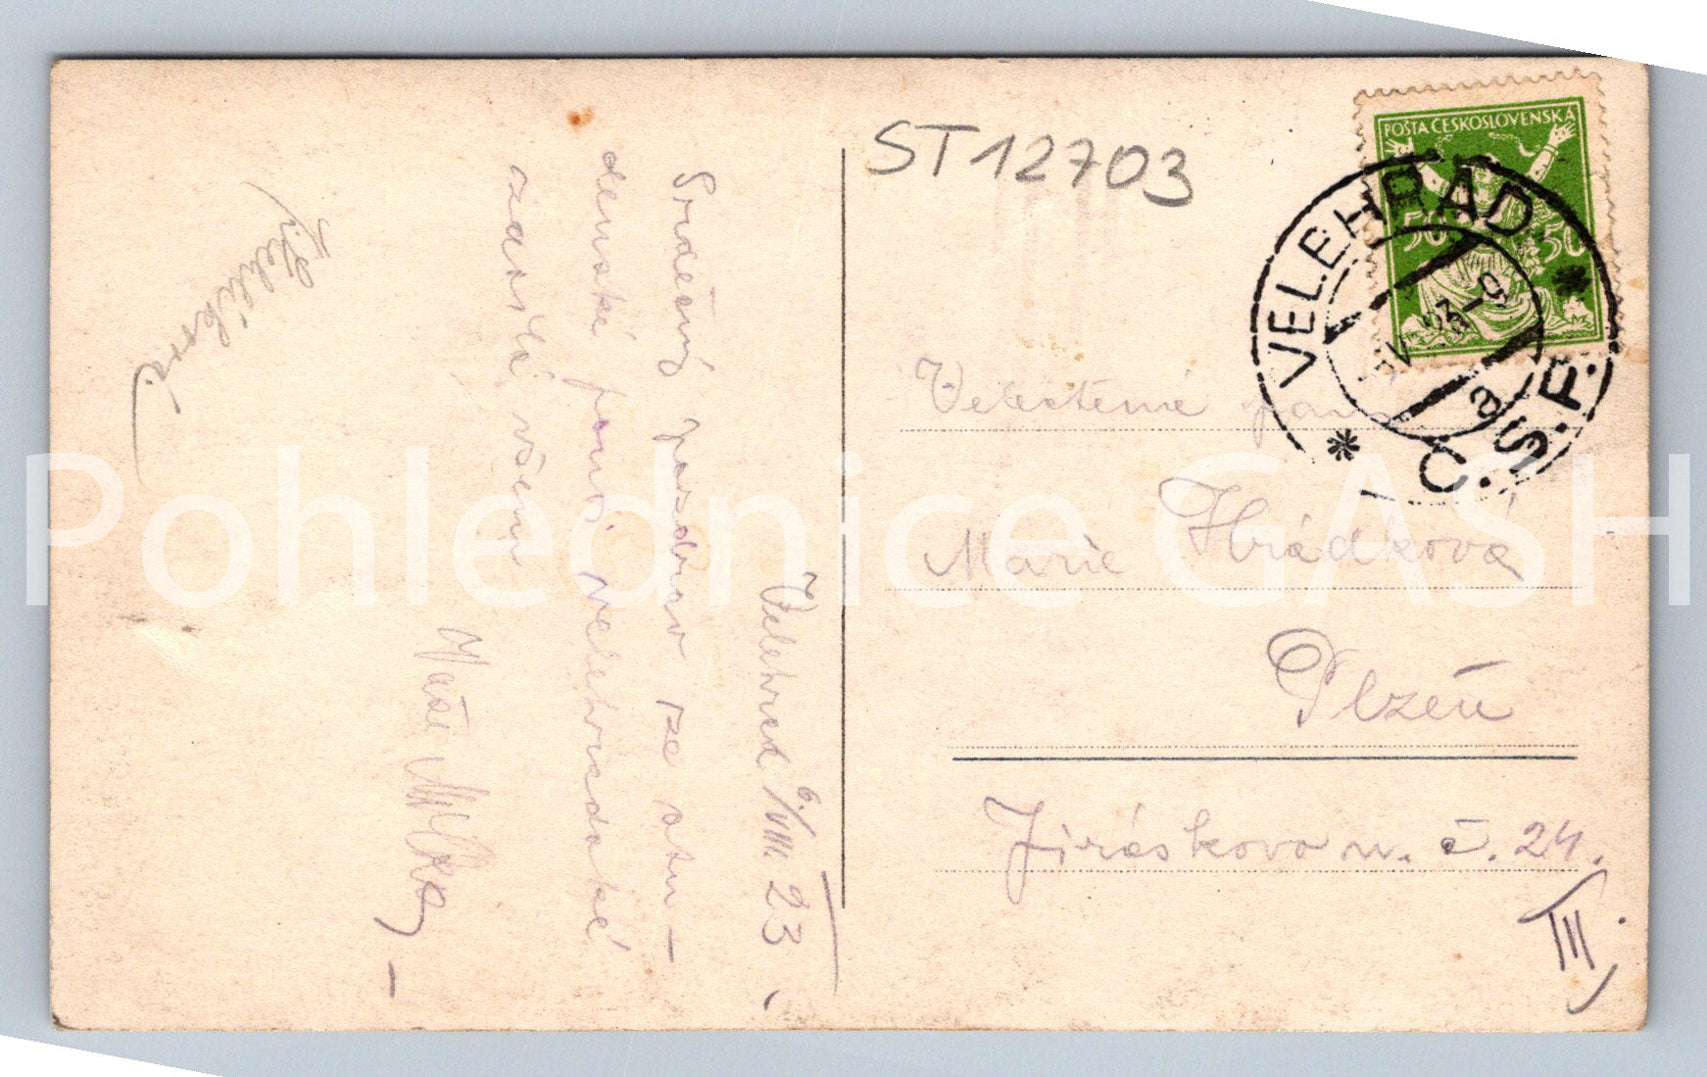 ST12703
POŠTA ČESKOSLOVENSKÁ
50 50
VELEHRAD
Č.S.P.
a
Velectěná paní
Marie Hrádková
Plzeň
Jiráskova u. č. 24.
III.
Velehrad 6./VIII. 23
Srdečný pozdrav ze stu-
denské pouti velehradské
zasílá všem
Váš
Pohlednice GASH